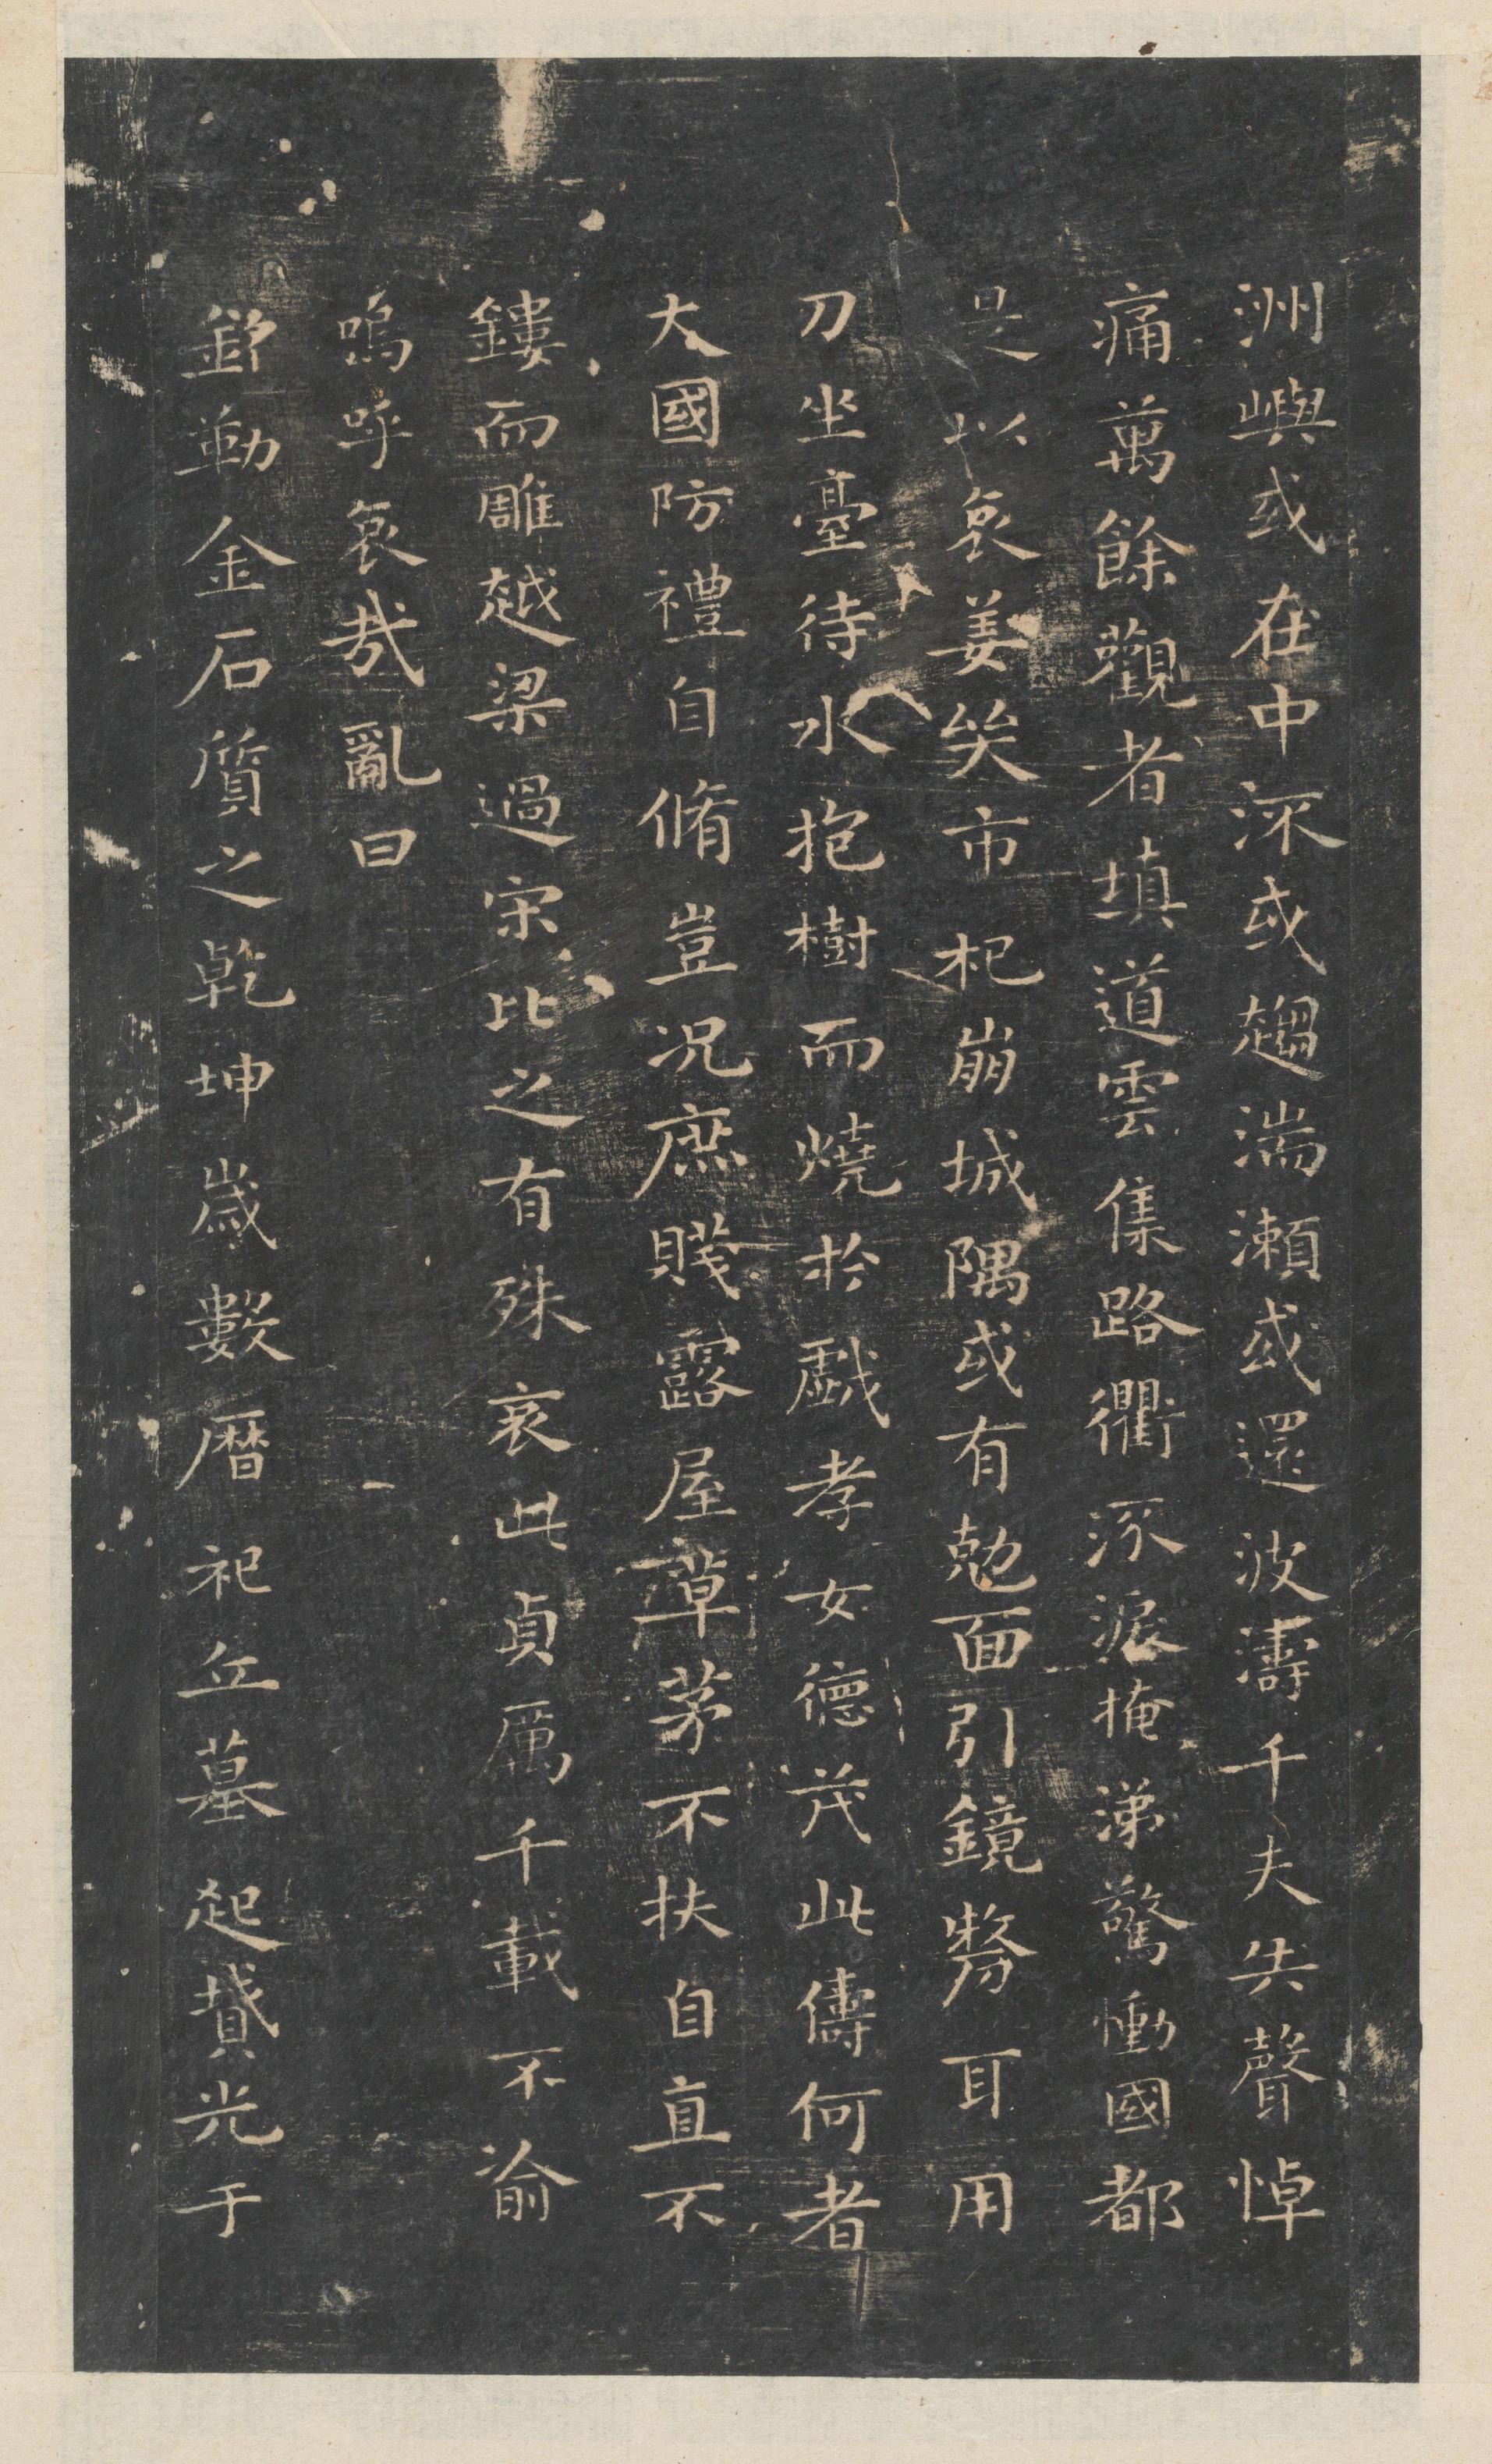 洲嶼或在中流或趨湍瀨或還波濤千夫失聲悼
痛萬餘觀者填道雲集路衢泳淚掩涕驚慟國都
是以哀姜哭市杞崩城隅或有尅面引鏡剺耳用
刀坐臺待水抱樹而燒於戲孝女德茂此儔何者
大國防禮自脩豈況庶賤露屋草茅不扶自直不
鏤而雕越梁過宋比之有殊哀此貞厲千載不渝
嗚呼哀哉亂曰
銘勒金石質之乾坤歲數曆祀丘墓起墳光于